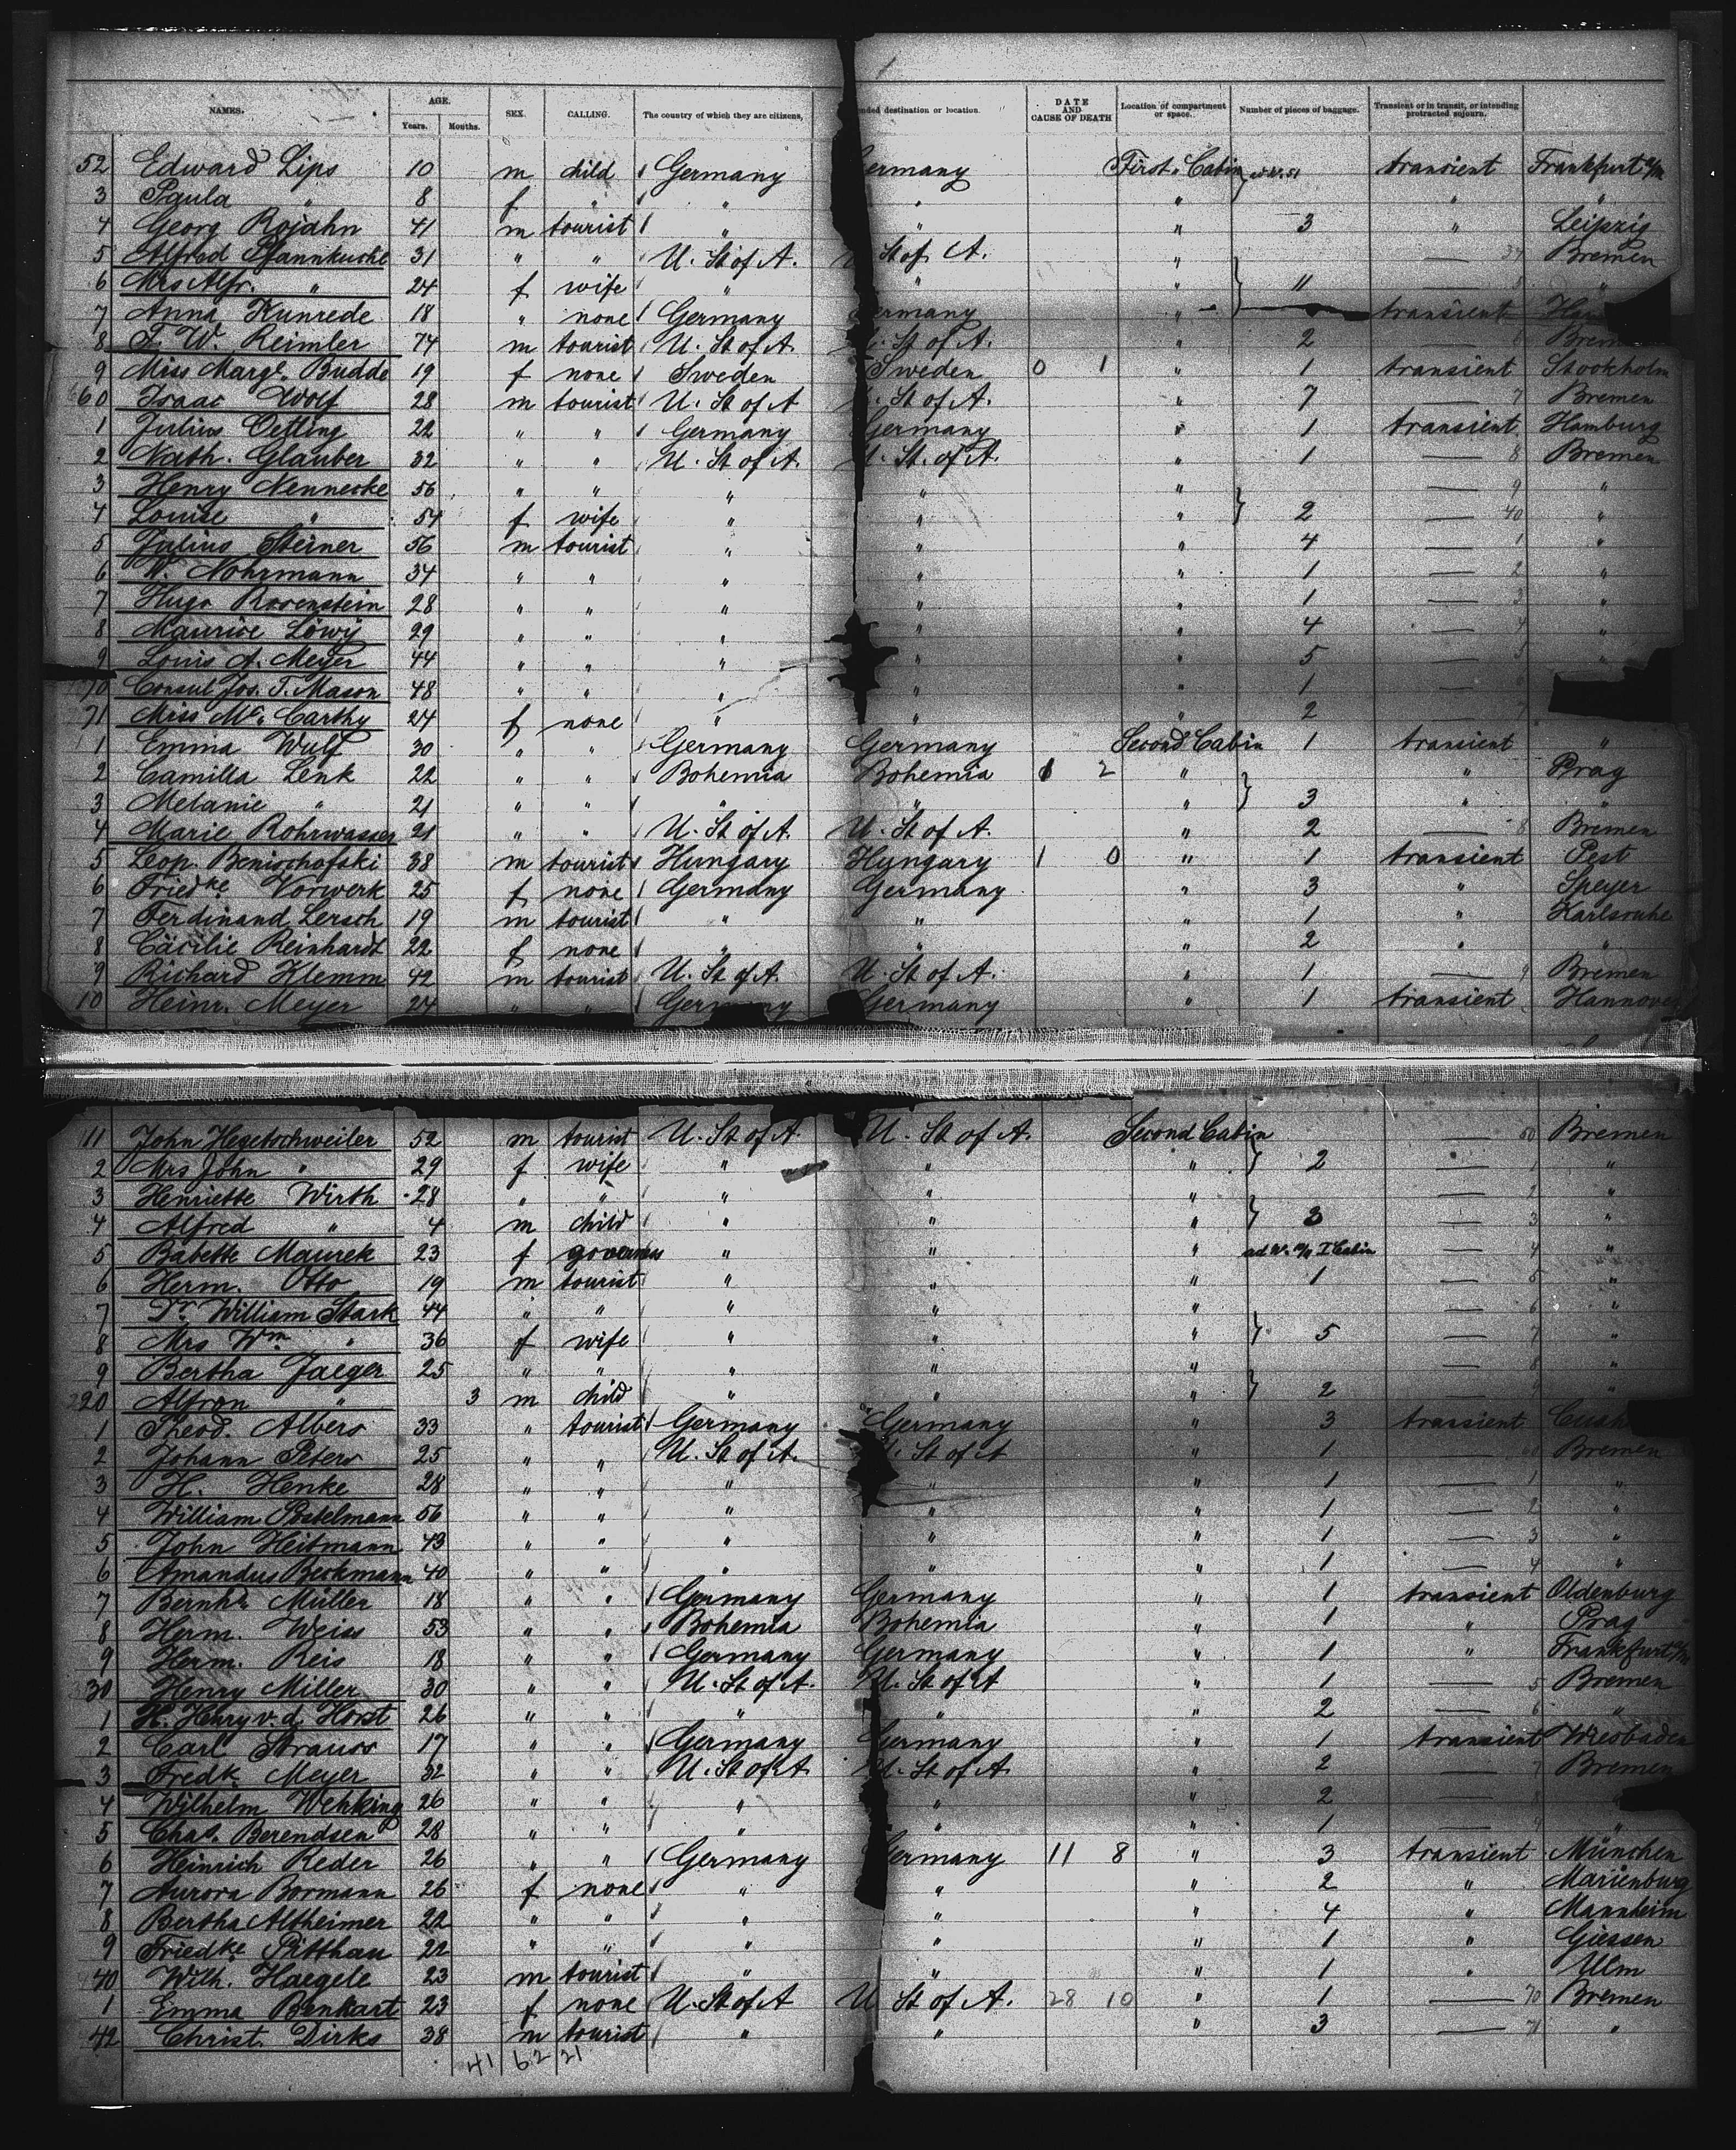 NAMES. AGE. Years. Months. SEX. CALLING. The country of which they are citizens, nded destination or location. DATE AND CAUSE OF DEATH Location of compartment or space. Number of pieces of baggage. Transient or in transit, or intending protracted sojourn.
52 Edward Lips 10 m child Germany ermany First Cabin transient Frankfurt a/M
3 Paula " 8 f " " " " " "
4 Georg Rojahn 41 m tourist " " " 3 " Leipzig
5 Alfred Pfannkuche 31 " " U. St of A. St of A. " — 37 Bremen
6 Mrs Alfr. " 24 f wife " " " } 11 — 5 "
7 Anna Kunrede 18 " none Germany ermany " — transient Ha
8 F. W. Reimler 74 m tourist U. St of A. St of A. " 2 — 6 Brem
9 Miss Margt. Budde 19 f none Sweden Sweden 0 1 " 1 transient Stockholm
60 Isaac Wolf 28 m tourist U. St of A St of A. " 7 — 7 Bremen
1 Julius Oetting 22 " " Germany Germany " 1 transient Hamburg
2 Nath. Glauber 32 " " U. St of A. U. St. of A. " 1 — 8 Bremen
3 Henry Nennecke 56 " " " " " — 9 "
4 Louise " 54 f wife " " " } 2 — 40 "
5 Julius Steiner 56 m tourist " " " 4 — 1 "
6 W. Nohrmann 34 " " " " " 1 — 2 "
7 Hugo Rosenstein 28 " " " " " 1 — 3 "
8 Maurice Löwy 29 " " " " " 4 — 4 "
9 Louis A. Meyer 44 " " " " " 5 — 5 "
70 Consul Jos. T. Mason 48 " " " " " 1 —
71 Miss Mc. Carthy 24 f none " " " 2 — 7
1 Emma Wulf 30 " " Germany Germany Second Cabin 1 transient "
2 Camilla Lenk 22 " " Bohemia Bohemia 1 2 " " Prag
3 Melanie " 21 " " " " " } 3 " "
4 Marie Rohrwasser 21 " " U. St of A. U. St of A. " 2 — 8 Bremen
5 Leop. Benischofski 38 m tourist Hungary Hungary 1 0 " 1 transient Pest
6 Friedke Vorwerk 25 f none Germany Germany " 3 " Speyer
7 Ferdinand Lersch 19 m tourist " " " 1 " Karlsruhe
8 Cäcilie Reinhardt 22 f none " " " 2 " "
9 Richard Klemm 42 m tourist U. St of A. U. St of A. " 1 — 9 Bremen
10 Heinr. Meyer 24 " " Germany Germany " 1 transient Hannover
11 John Hegetschweiler 52 m tourist U. St of A. U. St of A. Second Cabin — 50 Bremen
2 Mrs John " 29 f wife " " " } 2 — 1 "
3 Henriette Wirth 28 " " " " " — 2 "
4 Alfred " 4 m child " " " } 3 — 3 "
5 Babette Maurek 23 f governess " " " I Cabin — 4 "
6 Herm. Otto 19 m tourist " " " 1 — 5 "
7 Dr William Stark 44 " " " " " — 6 "
8 Mrs Wm. " 36 f wife " " " } 5 — 7 "
9 Bertha Jaeger 25 " " " " " — 8 "
20 Alfron " 3 m child " " " } 2 — 9 "
1 Theod. Albers 33 " tourist Germany Germany " 3 transient
2 Johann Peters 25 " " U. St of A. U. St of A " 1 — 60 Bremen
3 H. Henke 28 " " " " " 1 — 1 "
4 William Postelmann 56 " " " " " 1 — 2 "
5 John Heitmann 43 " " " " " 1 — 3 "
6 Amandus Beckmann 40 " " " " " 1 — 4 "
7 Bernhd. Müller 18 " " Germany Germany " 1 transient Oldenburg
8 Herm. Weiss 53 " " Bohemia Bohemia " 1 " Prag
9 Herm. Reis 18 " " Germany Germany " 1 " Frankfurt a/M
30 Henry Miller 30 " " U. St of A. U. St of A " 1 — 5 Bremen
1 H. Henry v. d. Horst 26 " " " " " 2 — 6 "
2 Carl Strauss 17 " " Germany Germany " 1 transient Wiesbaden
3 Fredk. Meyer 32 " " U. St of A U. St of A " 2 — 7 Bremen
4 Wilhelm Wehking 26 " " " " " 2 — 8 "
5 Chas. Berendsen 28 " " " " " 1 — 9 "
6 Heinrich Reder 26 " " Germany ermany 11 8 " 3 transient München
7 Aurora Bormann 26 f none " " " 2 " Marienburg
8 Bertha Altheimer 22 " " " " " 4 " Mannheim
9 Friedke Pitthan 22 " " " " " 1 " Giessen
40 Wilh. Haegele 23 m tourist " " " 1 " Ulm
1 Emma Benkart 23 f none U. St of A U St of A. 28 10 " 1 — 70 Bremen
42 Christ. Dirks 38 m tourist " " " 3 — 71 "
41 62 21